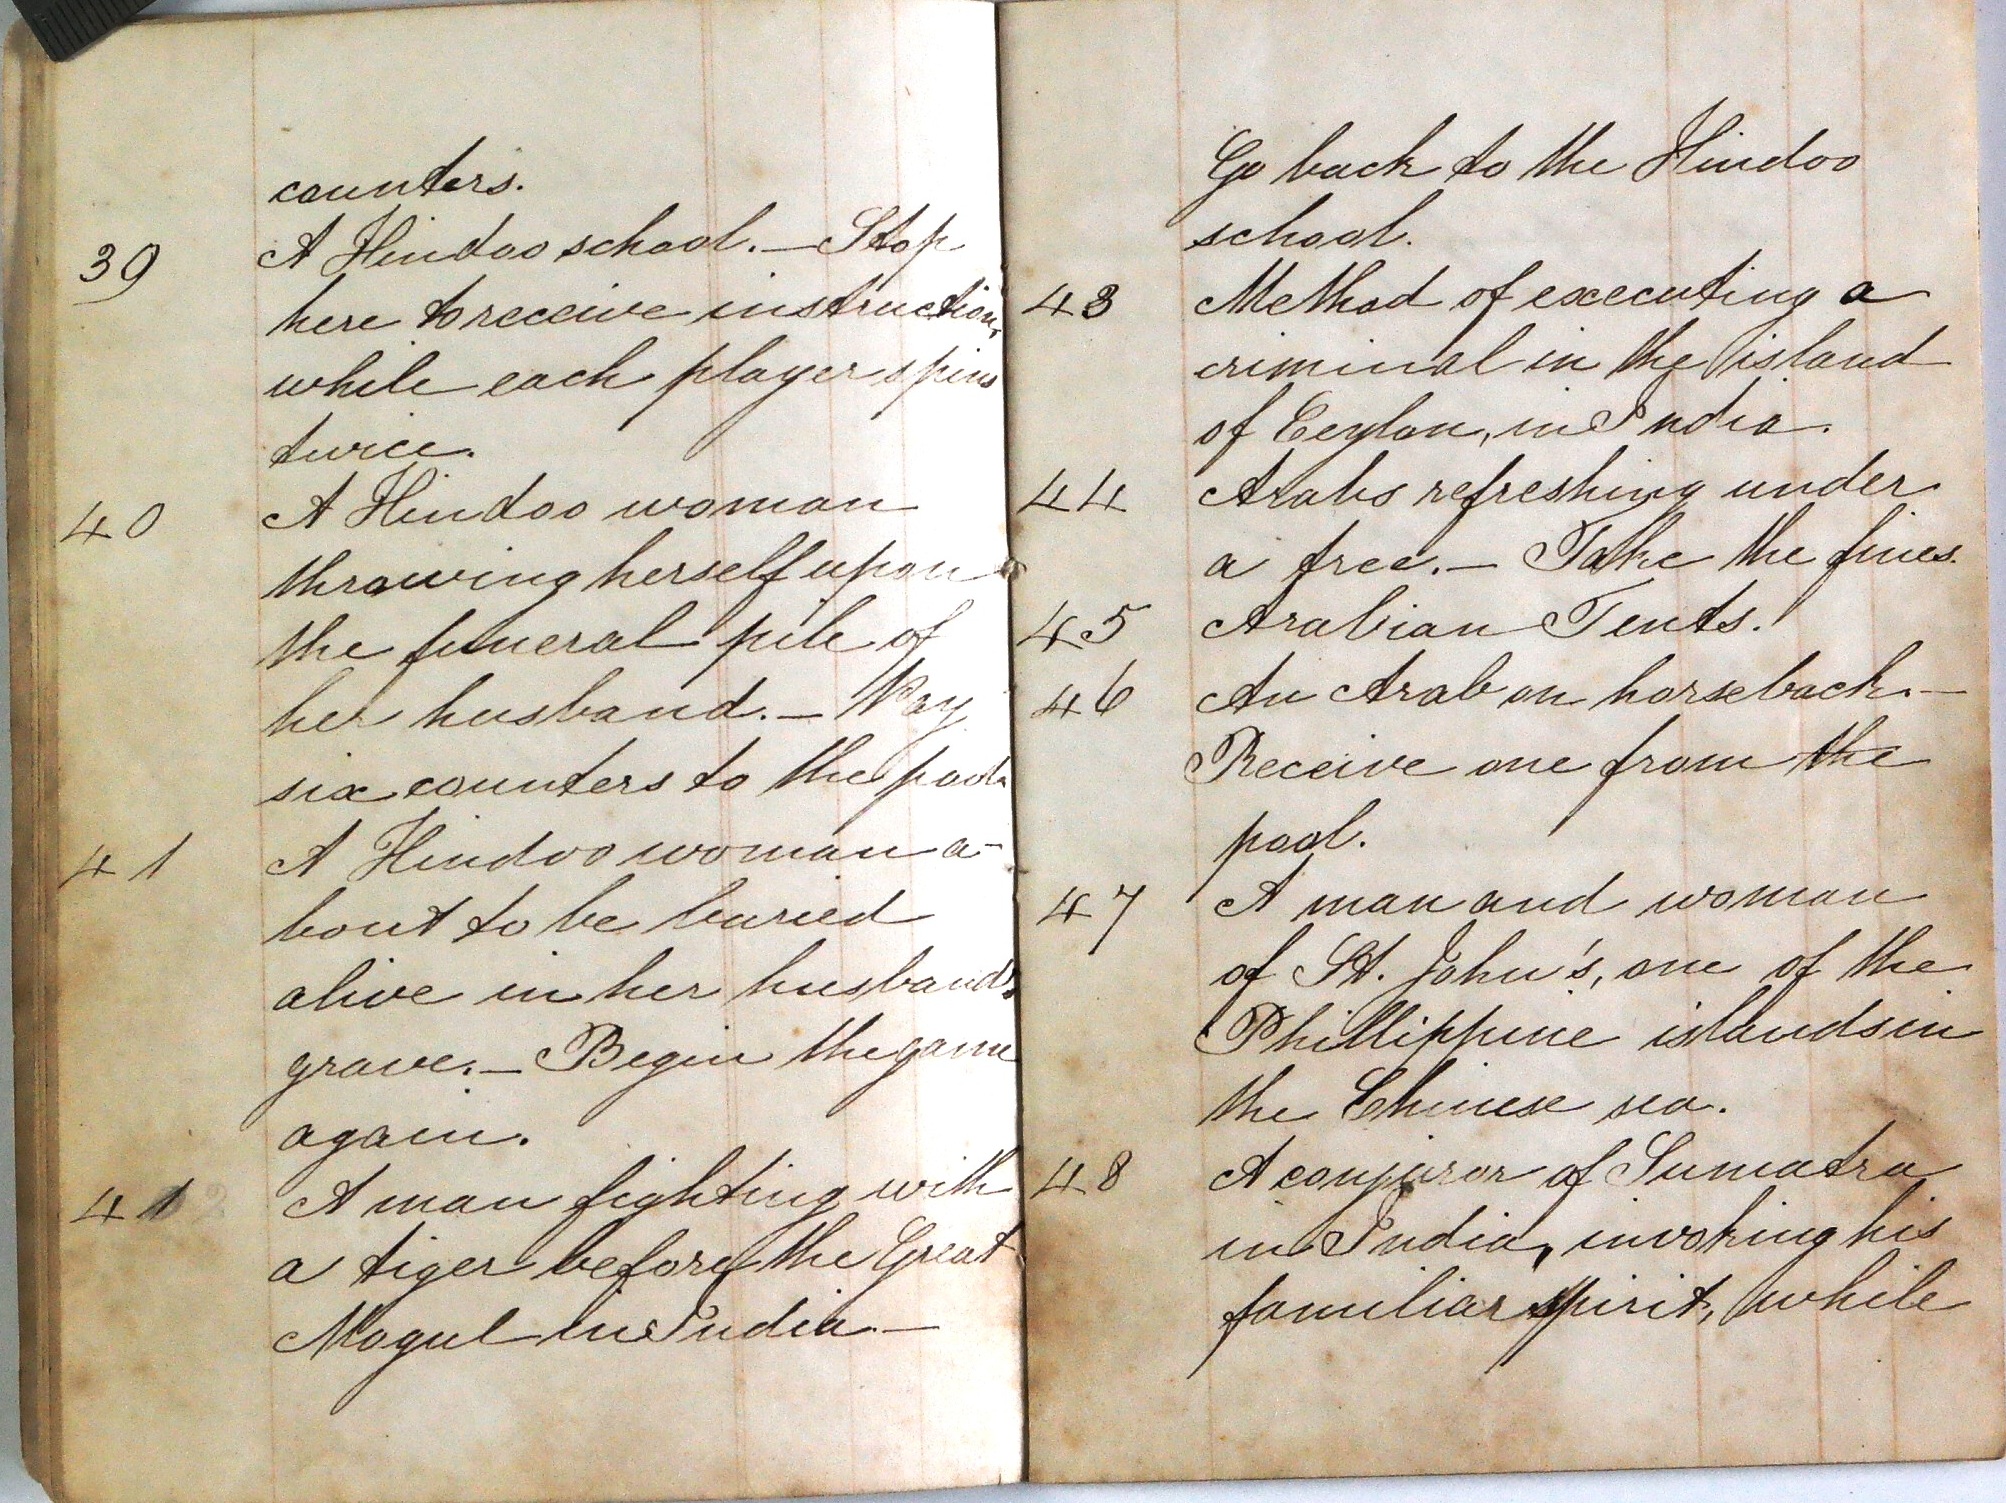 counters.
39 A Hindoo school. — Stop
here to receive instruction,
while each player spins
twice.
40 A Hindoo woman
throwing herself upon
the funeral pile of
her husband. — Pay
six counters to the pool.
41 A Hindoo woman a-
bout to be buried
alive in her husband's
grave. — Begin the game
again.
412 A man fighting with
a tiger before the Great
Mogul in India —
Go back to the Hindoo
school.
43 Method of executing a
criminal in the island
of Ceylon, in India.
44 Arabs refreshing under
a tree. — Take the fines.
45 Arabian Tents.
46 An Arab on horseback. —
Receive one from the
pool.
47 A man and woman
of St. John's, one of the
Phillippine islands in
the Chinese sea.
48 A conjuror of Sumatra
in India, invoking his
familiar spirit, while